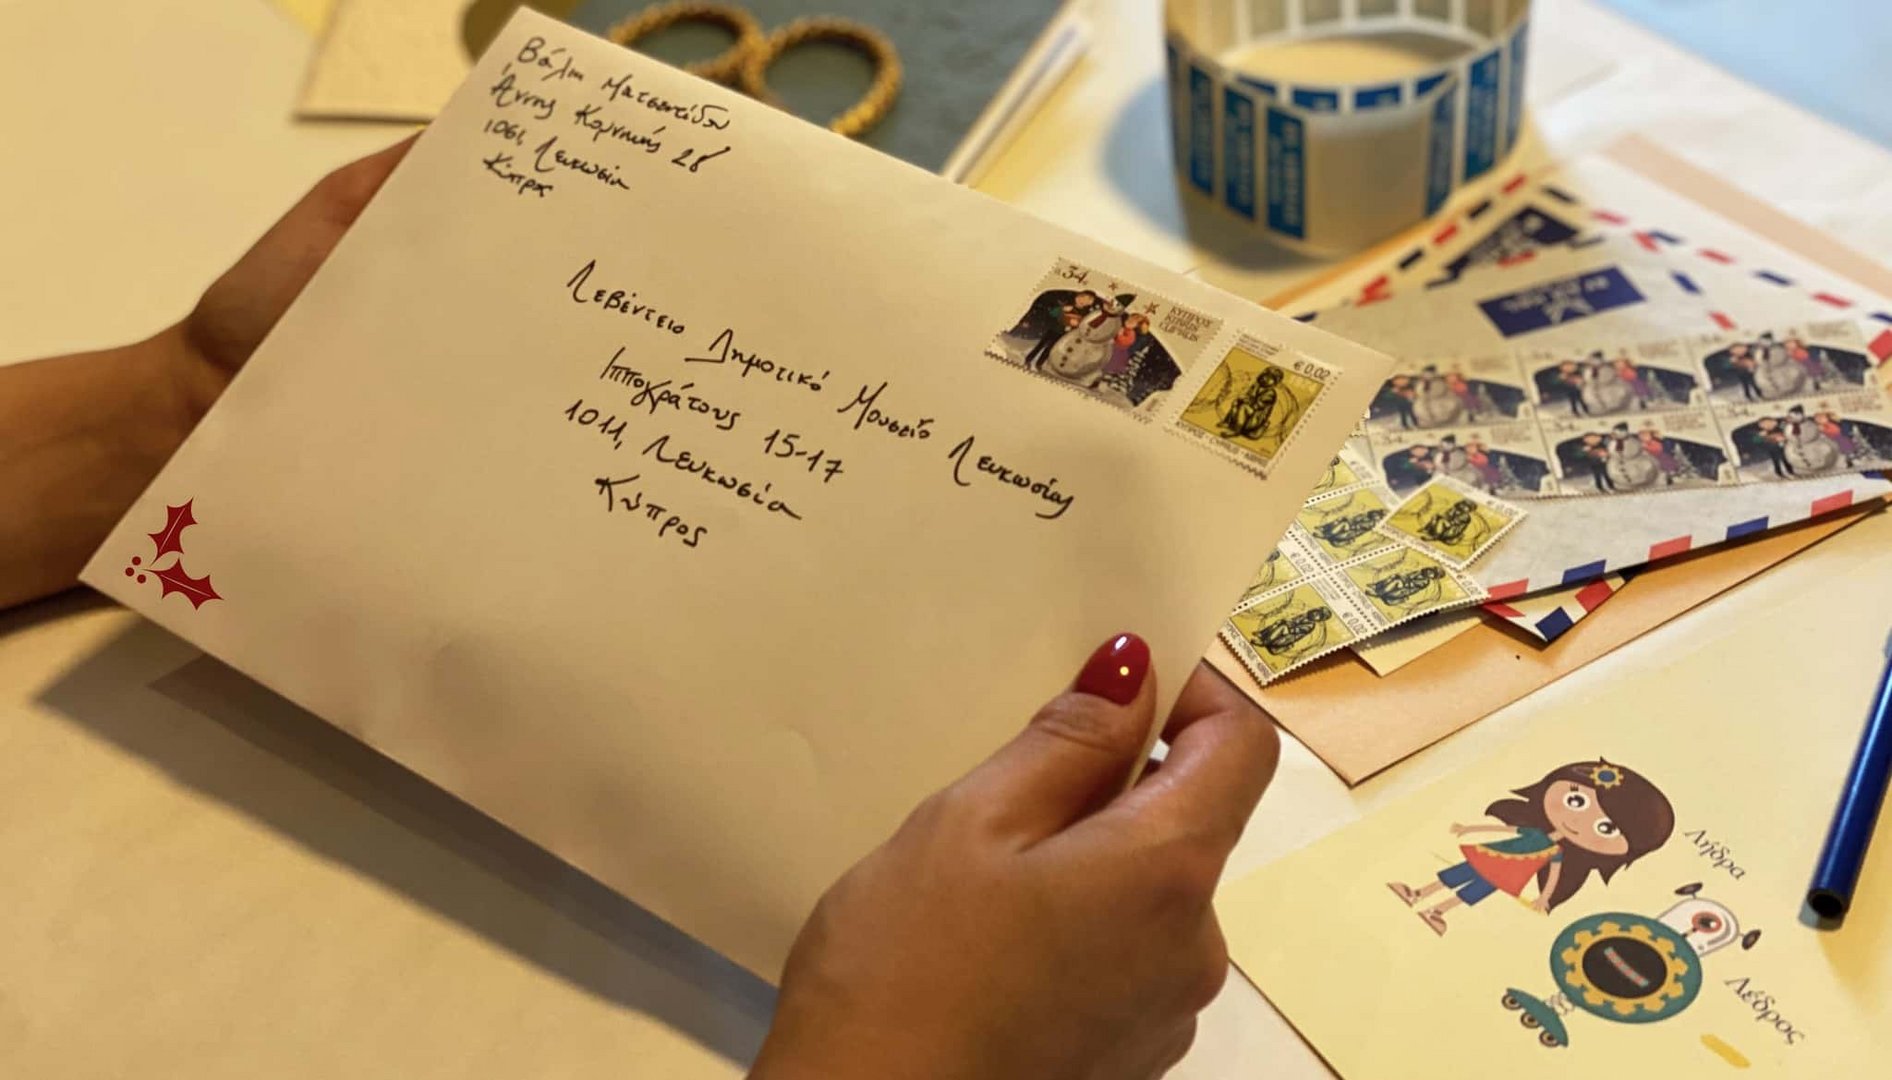 Βάλια Ματσεντίδου
Άννης Κομνηνής 28
1061, Λευκωσία
Κύπρος
Λεβέντειο Δημοτικό Μουσείο Λευκωσίας
Ιπποκράτους 15-17
1011, Λευκωσία
Κύπρος
34
ΚΥΠΡΟΣ
KIBRIS
CYPRUS
€ 0,02
ΚΥΠΡΟΣ - CYPRUS - KIBRIS
Λήδρα
Λέδρος